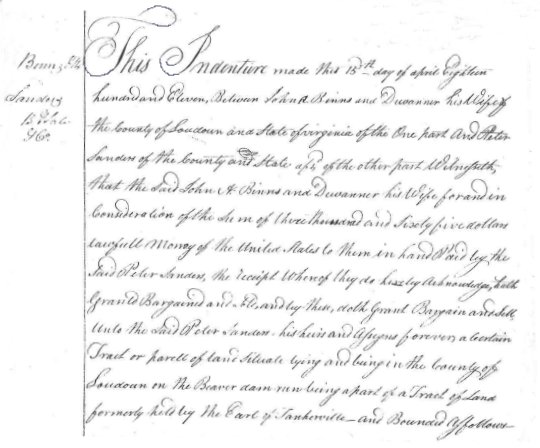 Binns & Ux
Sanders
B & Sale
This Indenture made this 15th day of april Eighteen
hundred and Eleven, Between John A Binns and Duwanner his Wife of
the County of Loudoun and State of virginia of the One part And Peter
Sanders of the County and State afs. of the other part Witnesseth,
that the Said John A Binns and Duwanner his Wife for and in
Consideration of the Sum of three hundred and Sixty five dollars
lawfull Money of the United States to them in hand Paid by the
Said Peter Sanders, the receipt Wherof they do hereby Acknowledge, hath
Granted Bargained and Sold, and by these, doth Grant Bargain and Sell
Unto the Said Peter Sanders his heirs and Assigns forever, a certain
Tract or parcll of land Situate lying and being in the County of
Loudoun on the Beaver dam run being a part of a Tract of Land
formerly held by the Earl of Tankerville - and Bounded As follows -